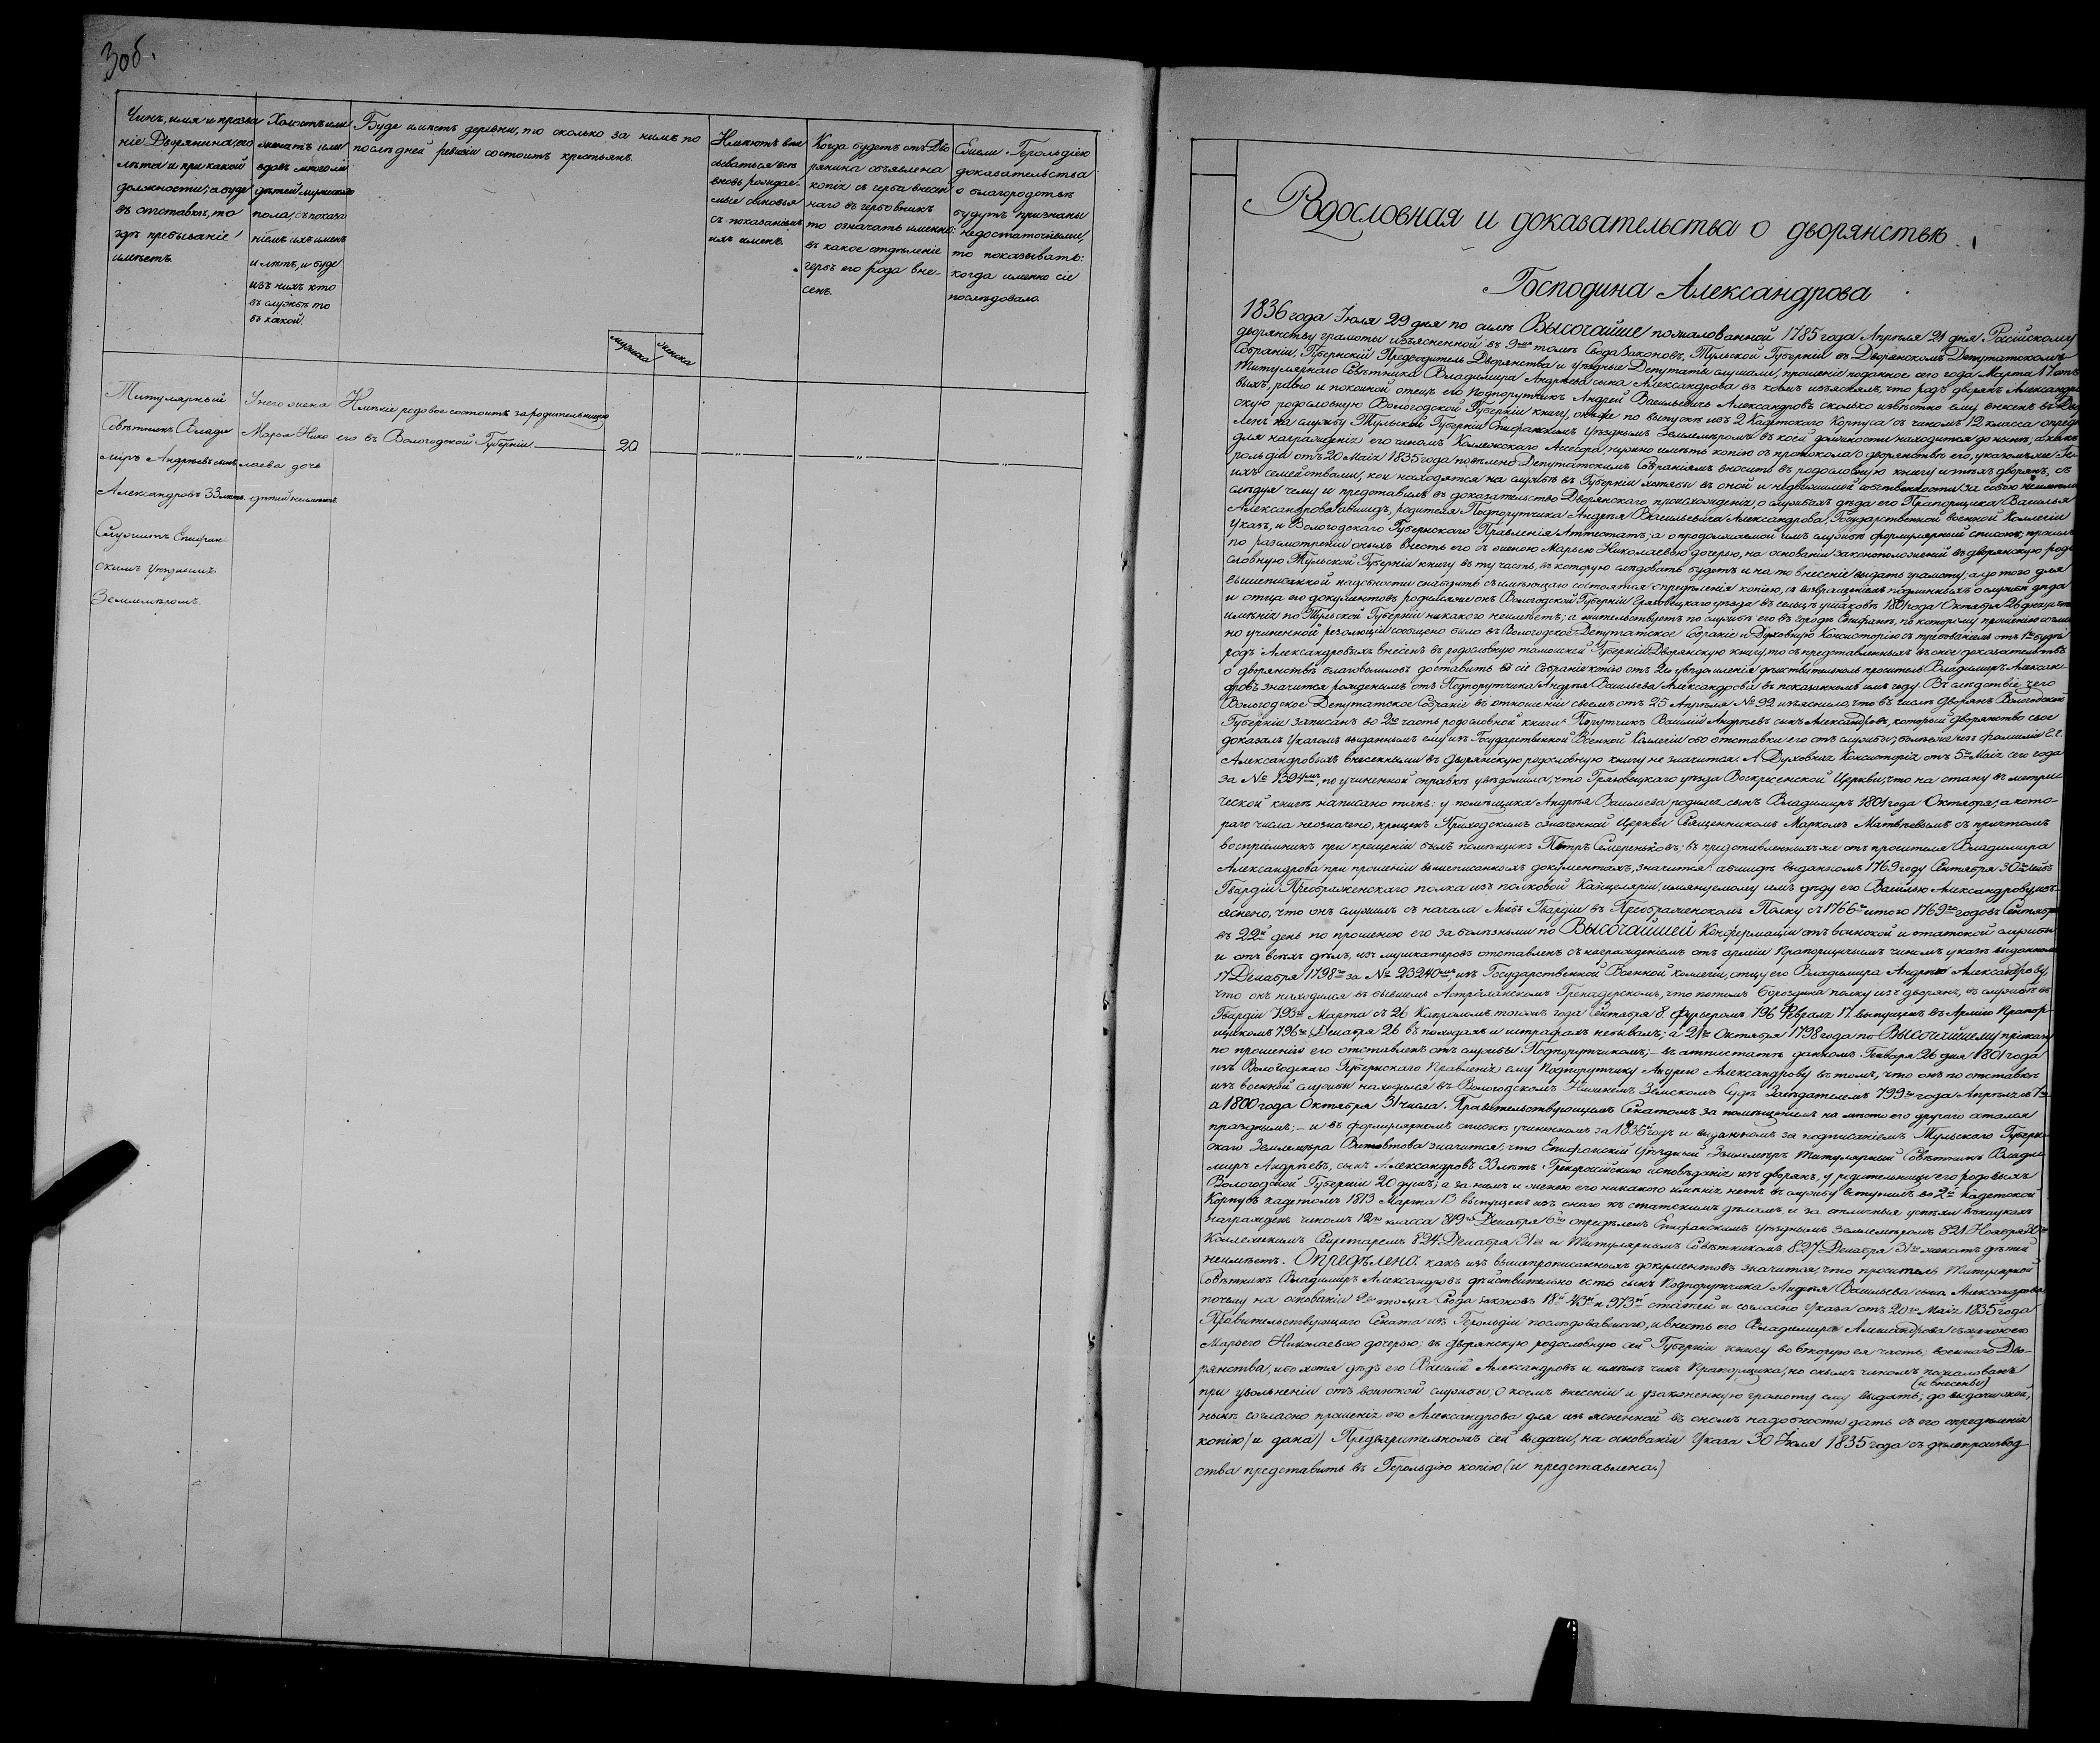 3об.
Чинъ, имя и прозва
ніе Дворянина, его
лѣта и при какой
должности, а буде
въ отставкѣ, то
гдѣ пребываніе
имѣетъ.
Холостъ или
женатъ или
вдовъ много ли
дѣтей мужеска
пола, съ показа
ніемъ ихъ именъ
и лѣтъ, и буде
изъ нихъ кто
въ службѣ то
въ какой.
Буде имѣетъ деревни, то сколько за нимъ по
послѣдней ревизіи состоитъ крестьянъ.
мужска
женска
Имѣютъ впи
сываться всѣ
вновь рождае-
мые сыновья
съ показаніемъ
ихъ именъ.
Когда будетъ отъ Дво
рянина объявлена
копія съ герба внесен
наго въ гербовникъ
то означать именно:
въ какое отдѣленіе
гербъ его рода вне-
сенъ.
Ежели Герольдіею
доказательства
о благородствѣ
будутъ признаны
недостаточными,
то показывать:
когда именно сіе
послѣдовало.
Титулярный
Совѣтникъ Влади
міръ Андреевъ сынъ
Александровъ 33 лѣтъ.
Служитъ Епифан
скимъ Уѣзднымъ
Землемѣромъ.
У него жена
Марья Нико
лаева дочь
дѣтей неимѣетъ
Имѣніе родовое состоитъ за родительницею
его въ Вологодской Губерніи
20
„ „ „
Родословная и доказательства о дворянствѣ
Господина Александрова
1836 года Іюля 29 дня по силѣ Высочайше пожалованной 1785 года Апрѣля 21 дня Россійскому
дворянству грамоты изъясненной въ 9мъ томѣ Свода Законовъ, Тульской Губерніи въ Дворянскомъ Депутатскомъ
Собраніи, Губернскій Предводитель Дворянства и уѣздные Депутаты слушали, прошеніе поданное сего года Марта 17 отъ
Титулярнаго Совѣтника Владиміра Андреева сына Александрова въ коемъ изъяснялъ, что родъ дворянъ Александро
выхъ, равно и покойной отецъ его Подпорутчикъ Андрей Васильевичъ Александровъ сколько извѣстно ему внесенъ въ Дво
скую родословную Вологодской Губерніи книгу, онъ же по выпускѣ изъ 2 Кадетскаго Корпуса съ чиномъ 12 класса опредѣ
ленъ на службу Тульской Губерніи Епифанскимъ Уѣзднымъ Землемѣромъ въ коей должности находится до нынѣ, а какъ
для награжденія его чиномъ Коллежскаго Асесора, нужно имѣть копію съ протокола о дворянствѣ его, указомъ же Ге
рольдіи отъ 20 Маія 1835 года повелено Депутатскимъ Собраніямъ вносить въ родословную книгу и тѣхъ дворянъ, съ
ихъ семействами, кои находятся на службѣ въ Губерніи хотябы въ оной и недвижимой собственности за собою неимѣли
слѣдуя чему и представилъ въ доказательство Дворянскаго происхожденія, о службахъ дѣда его Прапорщика Василья
Александрова абшидъ, родителя Подпорутчика Андрея Васильевича Александрова, Государственной военной Коллегіи
Указъ, и Вологодскаго Губернскаго Правленія Аттестатъ; а о продолжаемой имъ службѣ формулярный списокъ, просилъ
по разсмотреніи оныхъ внесть его съ женою Марьею Николаевою дочерью, на основаніи законоположеній въ дворянскую родо
словную Тульской Губерніи книгу въ ту часть, въ которую слѣдовать будетъ и на то внесеніе выдать грамоту, а до того для
вышеписанной надобности снабдить съ имѣющаго состоятся опредѣленія копіею, съ возвращеніемъ подлинныхъ о службѣ дѣда
и отца его документовъ родился же онъ Вологодской Губерніи Грязовецкаго уѣзда въ сельцѣ Ушаковѣ 1801 года Октября 26 дня,
имѣнія по Тульской Губерніи никакого неимѣетъ; а жительствуетъ по службѣ его въ городѣ Епифани, по которому прошенію соглас
но учиненной резолюціи сообщено было въ Вологодское Депутатское Собраніе и Духовную Консисторію съ требованіемъ отъ 1го буде
родъ Александровыхъ внесенъ въ родословную тамошней Губерніи Дворянскую книгу, то съ представленныхъ въ оное доказательствъ
о дворянствѣ благоволилобъ доставить въ сіе Собраніе копію отъ 2й увѣдомленія дѣйствительноль проситель Владиміръ Алексан-
дровъ значится рожденнымъ отъ Подпорутчика Андрея Васильева Александрова въ показанномъ имъ году. Въ слѣдствіе чего
Вологодское Депутатское Собраніе въ отношеніи своемъ отъ 25 Апрѣля № 92 изъяснило, что въ числѣ Дворянъ Вологодской
Губерніи записанъ во 2ю часть родословной книги Порутчикъ Василій Андреевъ сынъ Александровъ, который дворянство свое
доказалъ Указомъ выданнымъ ему изъ Государственной Военной Коллегіи объ отставкѣ его отъ службы; болѣе же изъ фамиліи Г.г.
Александровыхъ внесенными въ дворянскую родословную книгу не значится. А Духовная Консисторія отъ 5го Маія сего года
за № 1394мъ, по учиненной справкѣ увѣдомила, что Грязовецкаго уѣзда Воскресенской Церкви, что на стану въ метри
ческой книгѣ написано такъ: у помѣщика Андрея Васильева родился сынъ Владиміръ 1801 года Октября, а кото-
раго числа неозначено, крещенъ Приходскимъ означенной Церкви Священникомъ Маркомъ Матвѣевымъ съ причтомъ
воспріемникъ при крещеніи былъ помѣщикъ Петръ Семереньковъ; въ представленныхъ же отъ просителя Владиміра
Александрова при прошеніи вышеписанныхъ документахъ, значится: абшидѣ выданномъ 1769 году Сентября 30го Лейбъ
Гвардіи Преображенскаго полка изъ полковой Канцеляріи, имянуемому имъ дѣду его Василью Александрову, изъ-
яснено, что онъ служилъ съ начала Лейбъ Гвардіи въ Преображенскомъ Полку съ 1766го и того 1769го годовъ Сентября
въ 22й день по прошенію его за болѣзньми по Высочайшей Конфермаціи отъ воинской и статской службы
и отъ всѣхъ дѣлъ, изъ мушкатеровъ отставленъ съ награжденіемъ отъ арміи Прапорщичьимъ чиномъ указѣ выданномъ
17 Декабря 1798го за № 23240мъ, изъ Государственной Военной Коллегіи, отцу его Владиміра Андрею Александрову,
что онъ находился въ бывшемъ Астраханскомъ Гренадерскомъ, что потомъ Бороздина полку изъ дворянъ, въ службѣ въ
Гвардіи 793го Марта съ 26 Капраломъ тогожъ года Сентября 8. Фурьеромъ 796 Февраля 17. выпущенъ въ Армію Прапор-
щикомъ 796го Декабря 26 въ походахъ и штрафахъ небывалъ; а 21го Октября 1798 года по Высочайшему приказу
по прошенію его отставленъ отъ службы Подпорутчикомъ; — въ аттистатѣ данномъ Генваря 26 дня 1801 года
изъ Вологодскаго Губернскаго Правленія ему Подпорутчику Андрею Александрову въ томъ, что онъ по отставкѣ
изъ военной службы находился въ Вологодскомъ Нижнемъ Земскомъ Судѣ Засѣдателемъ 799го года Апрѣля съ 1го
а 1800 года Октября 31 числа. Правительствующимъ Сенатомъ за помѣщеніемъ на мѣсто его другаго остался
празднымъ; — и въ формулярномъ спискѣ учиненномъ за 1836й годъ и выданномъ за подписаніемъ Тульскаго Губерн
скаго Землемѣра Витовтова значится, что Епифанскій Уѣздный Землемѣръ Титулярный Совѣтникъ Влади
міръ Андреевъ, сынъ Александровъ 33 лѣтъ Грекороссійскаго исповѣданія изъ дворянъ, у родительницы его родовыхъ
Вологодской Губерніи 20 душъ; а за нимъ и женою его никакого имѣнія нетъ въ службу вступилъ во 2й Кадетской
Корпусъ кадетомъ 1813 Марта 13 выпущенъ изъ онаго къ статскимъ дѣламъ, и за отличныя успѣхи въ наукахъ
награжденъ чиномъ 12го класса 819го Декабря 6го опредѣленъ Епифанскимъ Уѣзднымъ Землемѣромъ 821 Ноября 30го
Коллежскимъ Секретаремъ 824 Декабря 31го и Титулярнымъ Совѣтникомъ 827 Декабря 31го женатъ дѣтей
неимѣетъ. Опредѣлено. какъ изъ вышепрописанныхъ документовъ значится, что проситель Титулярной
Совѣтникъ Владиміръ Александровъ дѣйствительно есть сынъ Подпорутчика Андрея Васильева сына Александрова
почему на основаніи 9го тома Свода законовъ 18й 43й и 973й статей и согласно Указа отъ 20го Маія 1835 года
Правительствующаго Сената изъ Герольдіи послѣдовавшаго, и внесть его Владиміра Александрова съ женою его
Марьею Николаевою дочерью; въ дворянскую родословную сей Губерніи книгу во вторую ея часть; военнаго Дво-
рянства, ибо хотя дѣдъ его Василій Александровъ и имѣлъ чинъ Прапорщика, но онымъ чиномъ пожалованъ
при увольненіи отъ воинской службы; о коемъ внесеніи (и внесены) и узаконенную грамоту ему выдать; до выдачи оной,
нынѣ согласно прошенія его Александрова для изъясненной въ ономъ надобности дать съ его опредѣленія
копію (и дана) Предварительномъ сей выдачи, на основаніи Указа 30 Іюля 1835 года съ дѣлопроизвод
ства представить въ Герольдію копію (и представлена.)